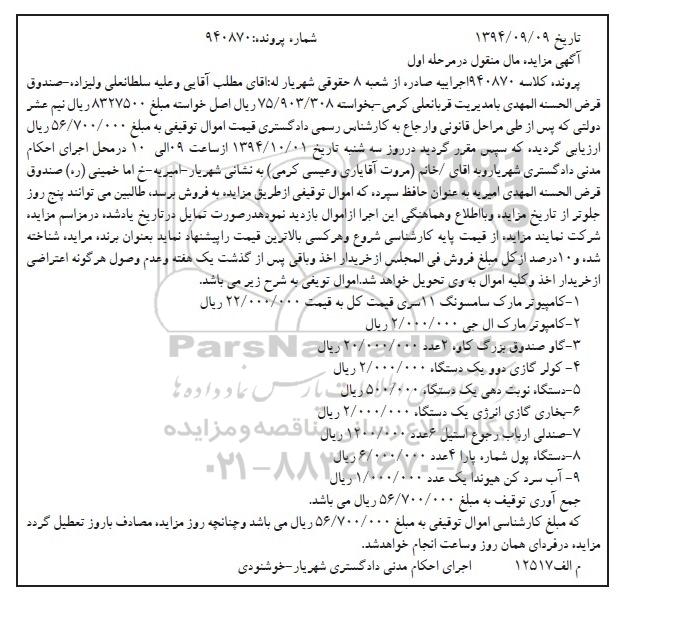 تاریخ ۱۳۹۴/۰۹/۰۹ شماره پرونده:۹۴۰۸۷۰
آگهی مزایده مال منقول درمرحله اول
پرونده کلاسه ۹۴۰۸۷۰اجراییه صادره از شعبه ۸ حقوقی شهریار له:اقای مطلب آقایی وعلیه سلطانعلی ولیزاده-صندوق
قرض الحسنه المهدی بامدیریت قربانعلی کرمی-بخواسته ۷۵/۹۰۳/۳۰۸ ریال اصل خواسته مبلغ ۸۳۲۷۵۰۰ ریال نیم عشر
دولتی که پس از طی مراحل قانونی وارجاع به کارشناس رسمی دادگستری قیمت اموال توقیفی به مبلغ ۵۶/۷۰۰/۰۰۰ ریال
ارزیابی گردیده که سپس مقرر گردید درروز سه شنبه تاریخ ۱۳۹۴/۱۰/۰۱ ازساعت ۰۹الی ۱۰ درمحل اجرای احکام
مدنی دادگستری شهریاروبه اقای /خانم (مروت آقایاری وعیسی کرمی) به نشانی شهریار-امیریه-خ اما خمینی (ره) صندوق
قرض الحسنه المهدی امیریه به عنوان حافظ سپرده که اموال توقیفی ازطریق مزایده به فروش برسد، طالبین می توانند پنج روز
جلوتر از تاریخ مزایده وبااطلاع وهماهنگی این اجرا ازاموال بازدید نمودهدرصورت تمایل درتاریخ یادشده درمراسم مزایده
شرکت نمایند مزایده از قیمت پایه کارشناسی شروع وهرکسی بالاترین قیمت راپیشنهاد نماید بعنوان برنده مزایده شناخته
شده و۱۰درصد ازکل مبلغ فروش فی المجلس ازخریدار اخذ وباقی پس از گذشت یک هفته وعدم وصول هرگونه اعتراضی
ازخریدار اخذ وکلیه اموال به وی تحویل خواهد شد.اموال تویفی به شرح زیر می باشد.
۱-کامپیوتر مارک سامسونگ ۱۱سری قیمت کل به قیمت ۲۲/۰۰۰/۰۰۰ ریال
۲-کامپوتر مارک ال جی ۲/۰۰۰/۰۰۰ ریال
۳-گاو صندوق بزرگ کاوه ۲عدد ۲۰/۰۰۰/۰۰۰ ریال
۴- کولر گازی دوو یک دستگاه ۲/۰۰۰/۰۰۰ ریال
۵-دستگاه نوبت دهی یک دستگاه ۵۰۰/۰۰۰ ریال
۶-بخاری گازی انرژی یک دستگاه ۲/۰۰۰/۰۰۰ ریال
۷-صندلی ارباب رجوع استیل ۶عدد ۱۲۰۰/۰۰۰ ریال
۸-دستگاه پول شماره پارا ۴عدد ۶/۰۰۰/۰۰۰ ریال
۹- آب سرد کن هیوندا یک عدد ۱/۰۰۰/۰۰۰ ریال
جمع آوری توقیف به مبلغ ۵۶/۷۰۰/۰۰۰ ریال می باشد.
که مبلغ کارشناسی اموال توقیفی به مبلغ ۵۶/۷۰۰/۰۰۰ ریال می باشد وچنانچه روز مزایده مصادف باروز تعطیل گردد
مزایده درفردای همان روز وساعت انجام خواهدشد.
م الف۱۲۵۱۷ اجرای احکام مدنی دادگستری شهریار-خوشنودی
ParsNamadData
پایگاه اطلاع رسانی مناقصه و مزایده
۰۲۱-۸۸۳۴۹۶۷۰-۵